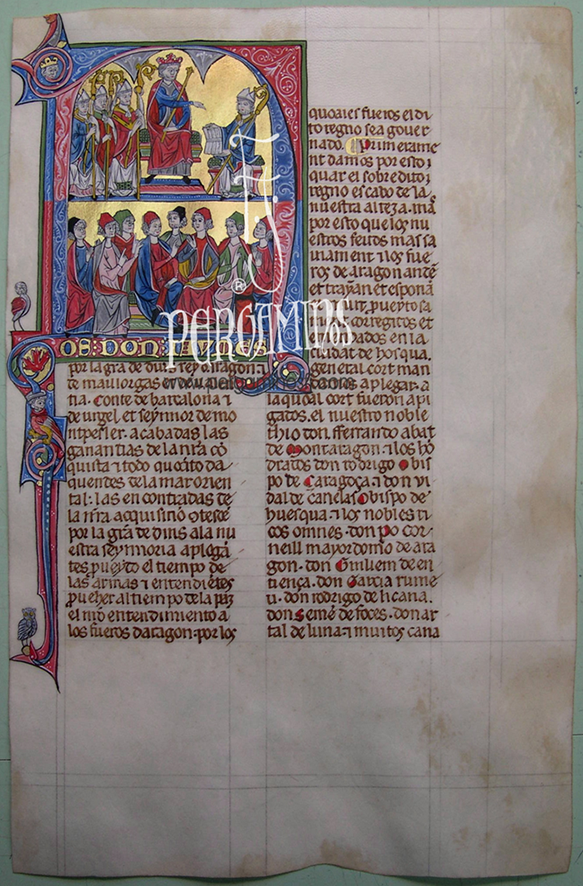 PERGAMINOS
OS DON IAUMES
por la gra de dius rey daragon ⁊
te mailorgas
na. Conte de barcalona ⁊
de urgel. et seynnor de mo
ntpesler. acabadas las
ganantias de la nra co
quista ⁊ todo quato da
quentes de la mar orien
tal: las encontradas de
la nra acquisicio
por la gra de dius ala nu
estra seynnoria
tes. pueyto el tiempo de
las armas ⁊
pueher al tiempo de la paz
el nro entendimiento a
los fueros daragon. por los
quoales fueros el di
to regno sea gouer
nado.
nt damos por esto ⁊
quar el sobredito ⁊
regno es cabo de la
nuestra alteza. ma
por esto que los nu
estros feuds mas sa
nament ⁊ los fue
ros de aragon ante
et trayan et espona
pueyto sa
corregitos et
ados en la
ciudat de hosqua.
general cort man
a plegar. a
la quoal cort fueron apl
gados. el nuestro noble
thio don. fferrando abat
de Montaragon. ⁊ los ho
dratos don rodrigo Obis
po de Caragoça. ⁊ don vi
dal de canelas Obispo de
huesqua. ⁊ los nobles ri
cos omnes. don po cor
neill mayordomo de ara
gon. don Guillem de en
tiença. don Garcia rume
u. don rodrigo de liçana.
don Semé de foces. don ar
tal de luna. ⁊ muitos cana